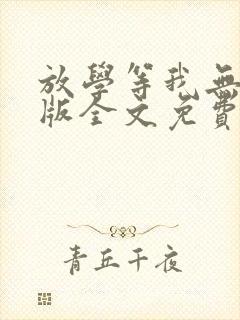 放學等我無
版全文免費
青丘千夜